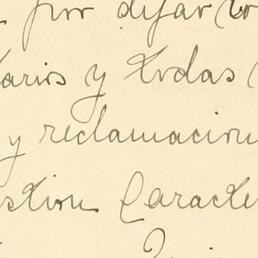 por dejar
arios y todas
y reclamacion
stion Caracte